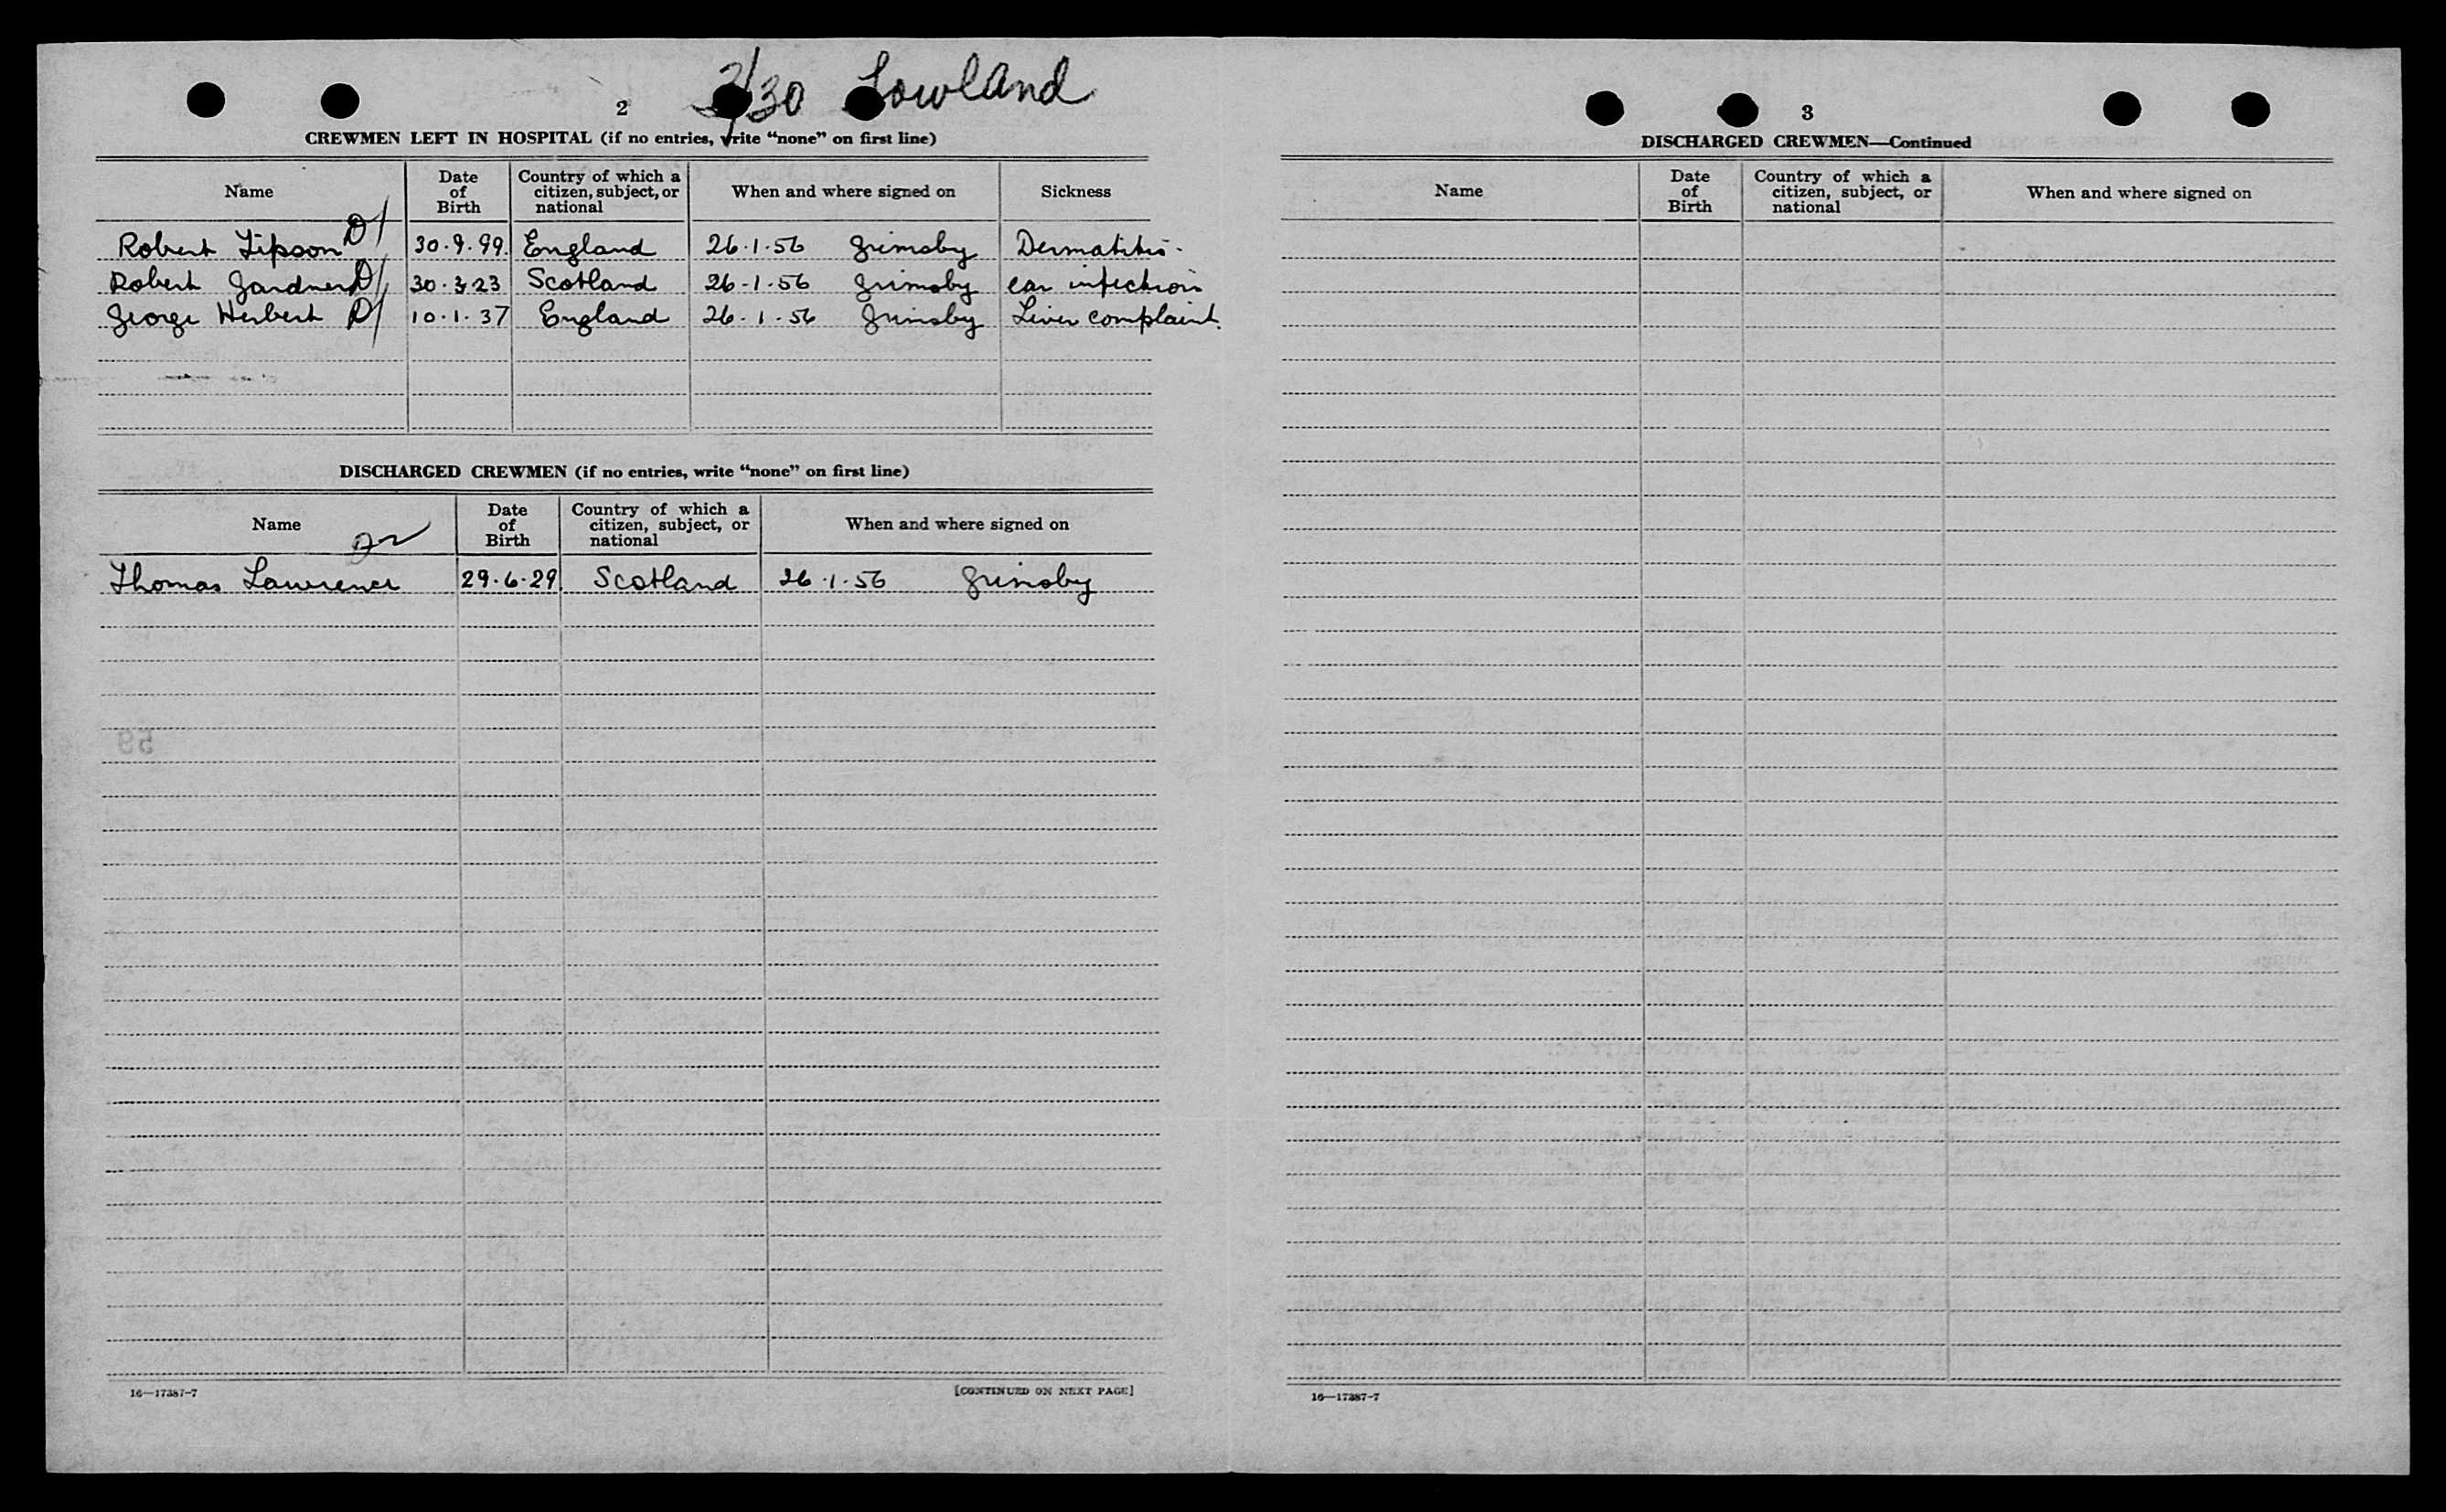 3/30 Lowland
2
CREWMEN LEFT IN HOSPITAL (if no entries, write "none" on first line)
Name Date of Birth Country of which a citizen, subject, or national When and where signed on Sickness
Robert Lipson D/ 30.9.99. England 26.1.56 Grimsby Dermatitis.
Robert Gardner D/ 30.3.23 Scotland 26.1.56 Grimsby ear infection
George Herbert D/ 10.1.37 England 26.1.56 Grimsby Liver complaint.
DISCHARGED CREWMEN (if no entries, write "none" on first line)
Name Date of Birth Country of which a citizen, subject, or national When and where signed on
Thomas Lawrence 29.6.29. Scotland 26.1.56 Grimsby
59
16—17387-7 [CONTINUED ON NEXT PAGE]
3
DISCHARGED CREWMEN—Continued
Name Date of Birth Country of which a citizen, subject, or national When and where signed on
16—17387-7